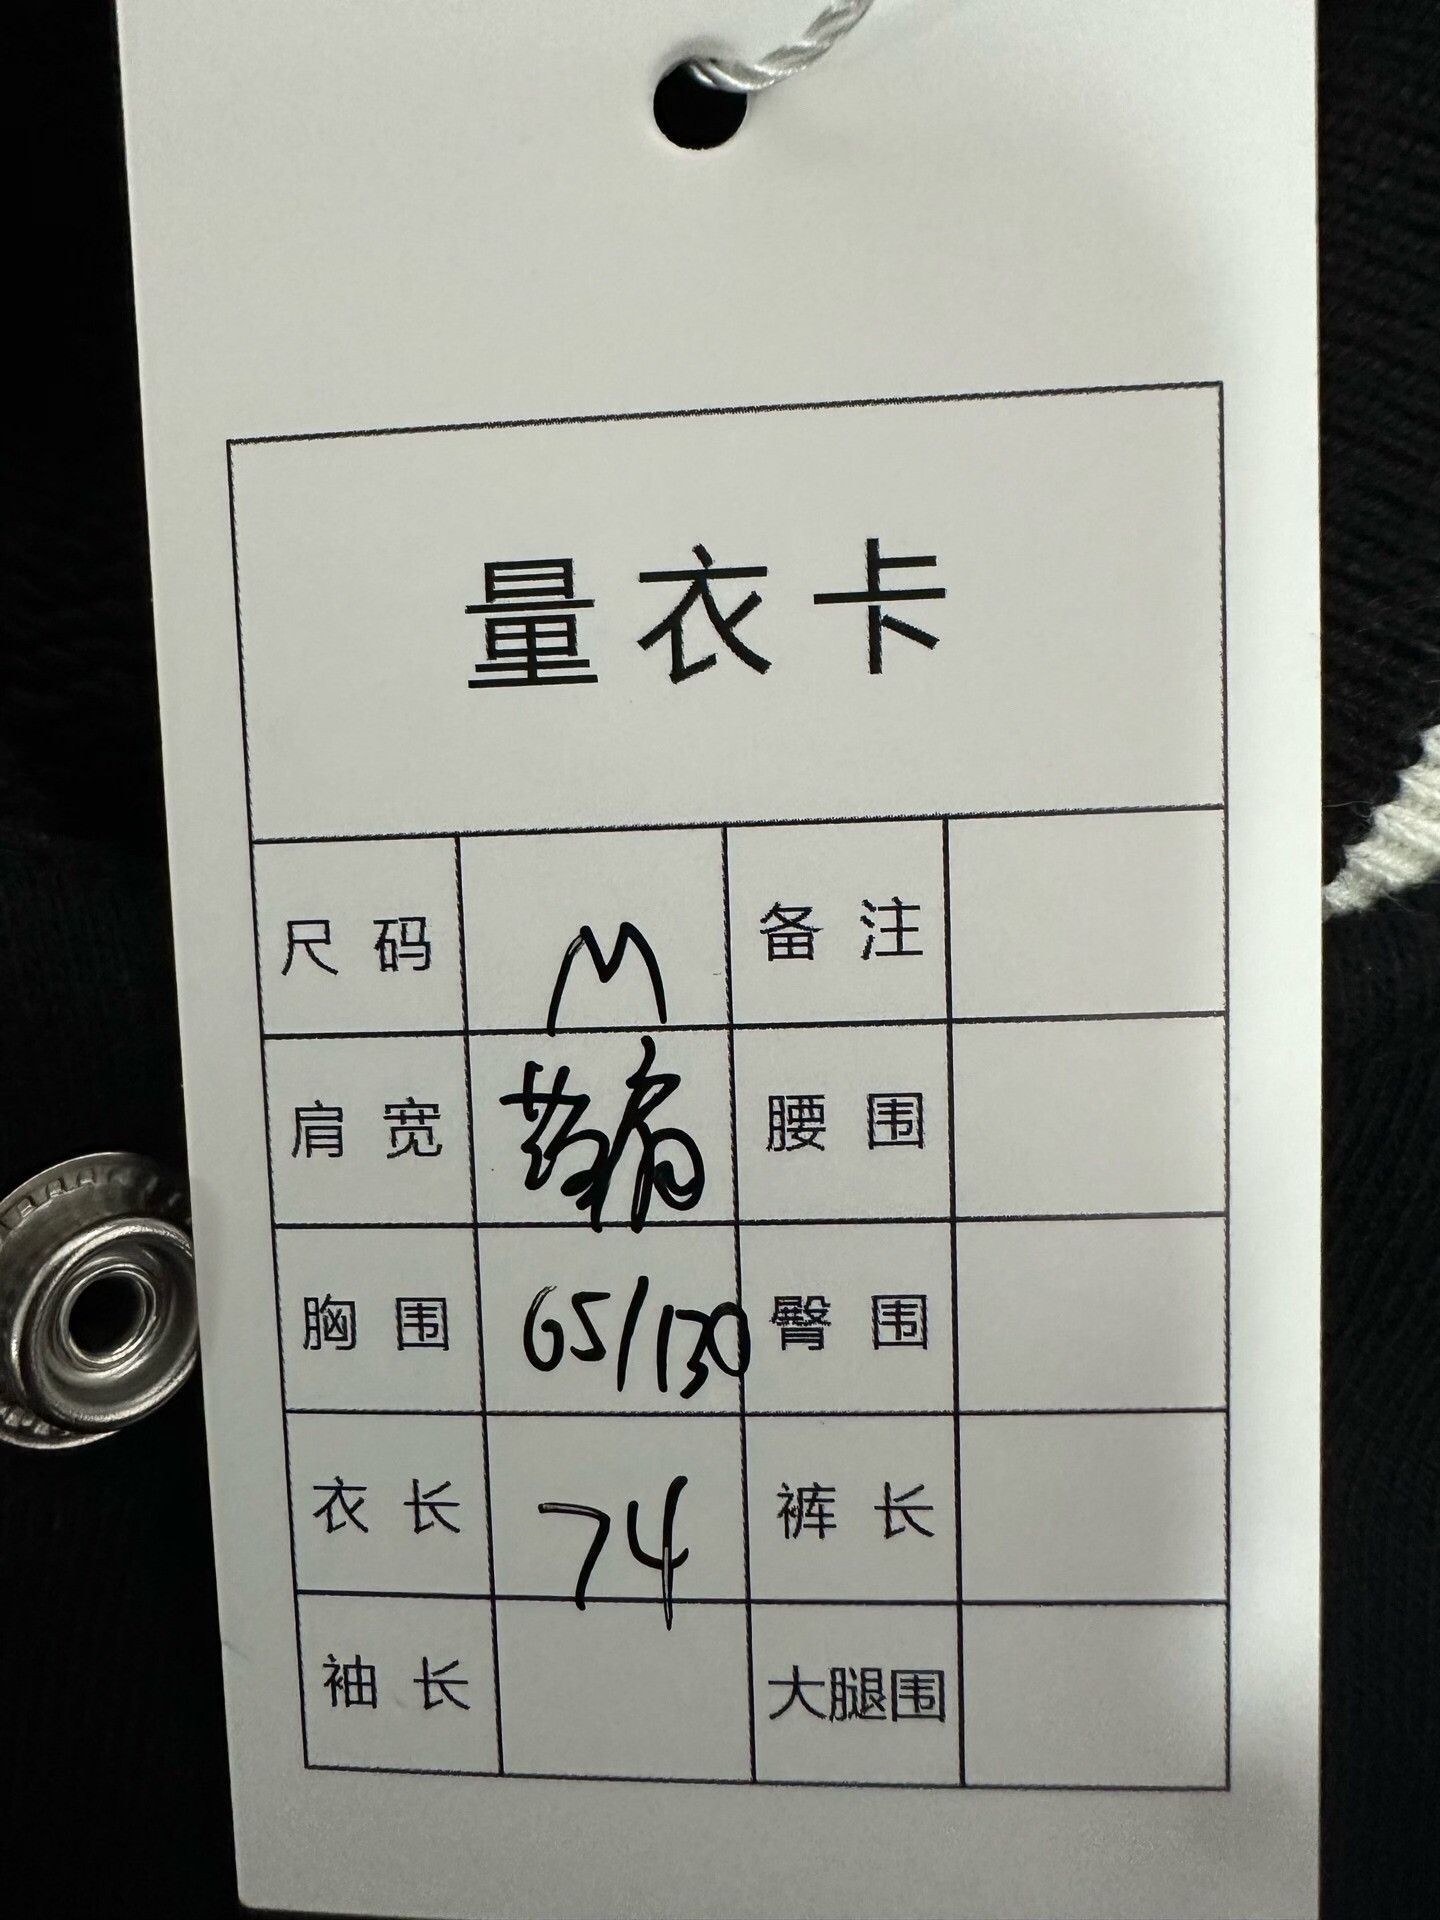 量衣卡
尺码 M 备注
肩宽 落肩 腰围
胸围 65/130 臀围
衣长 74 裤长
袖长 大腿围